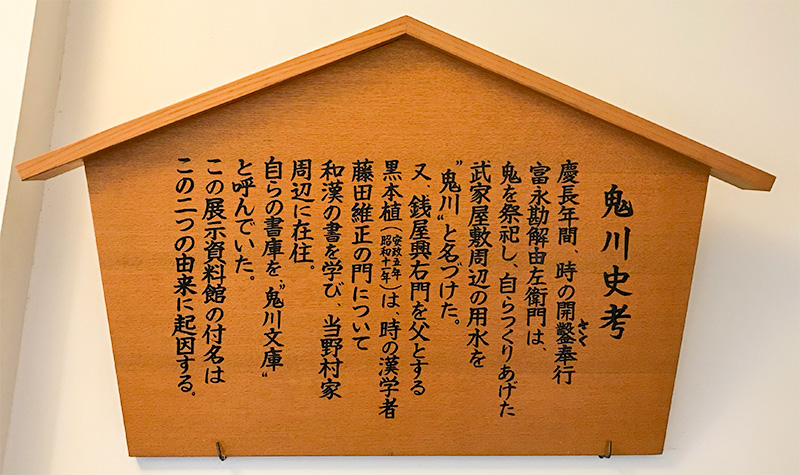 鬼川史考
慶長年間、時の開鑿奉行
さく
富永勘解由左衛門は、
鬼を祭祀し、自らつくりあげた
武家屋敷周辺の用水を
"鬼川"と名づけた。
又、銭屋興右門を父とする
黒本植(安政五年
昭和十一年)は、時の漢学者
藤田維正の門について
和漢の書を学び、当野村家
周辺に在住。
自らの書庫を"鬼川文庫"
と呼んでいた。
この展示資料館の付名は
この二つの由来に起因する。